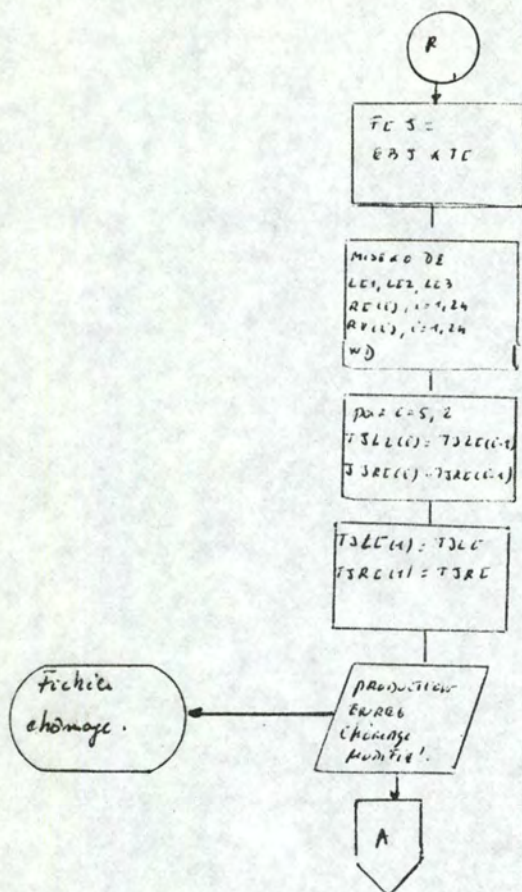 R
FCJ =
EBJ x TC
MISE A 0 DE
LE1, LE2, LE3
RE(i), i=1,24
RV(i), i=1,24
WD
pour i=5,2
TJLE(i) = TJLE(i-1)
TJRE(i) = TJRE(i-1)
TJLE(1) = TJLE
TJRE(1) = TJRE
PRODUCTION
ENREG
CHOMAGE
MODIFIE'.
Fichier
chômage.
A